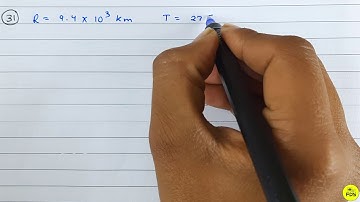 31 R = 9.4 × 10³ km T = 27
PDS